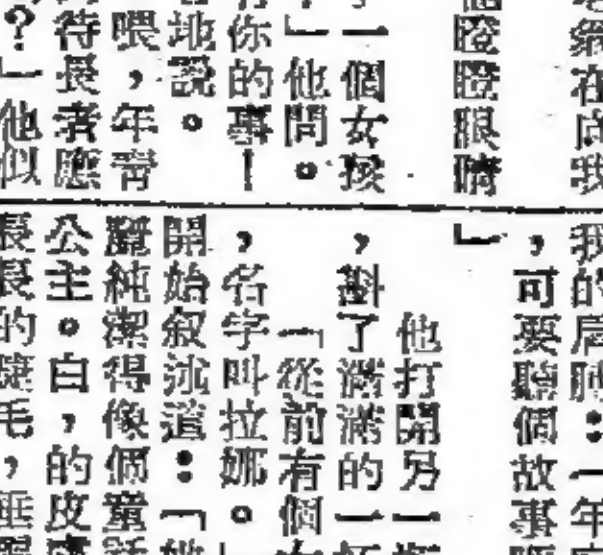 在我
瞪瞪眼睛
一個女孩
」他問。
你的事！
地說。
喂，年青
待長者應
？」他似
我的肩膊：一年
，可要聽個故事
」
他打開另一
，斟了滿滿的一
「從前有個
，名字叫拉娜。」
開始叙述道：「她
純潔得像個童話
公主。白，的皮膚
長長的睫毛，垂